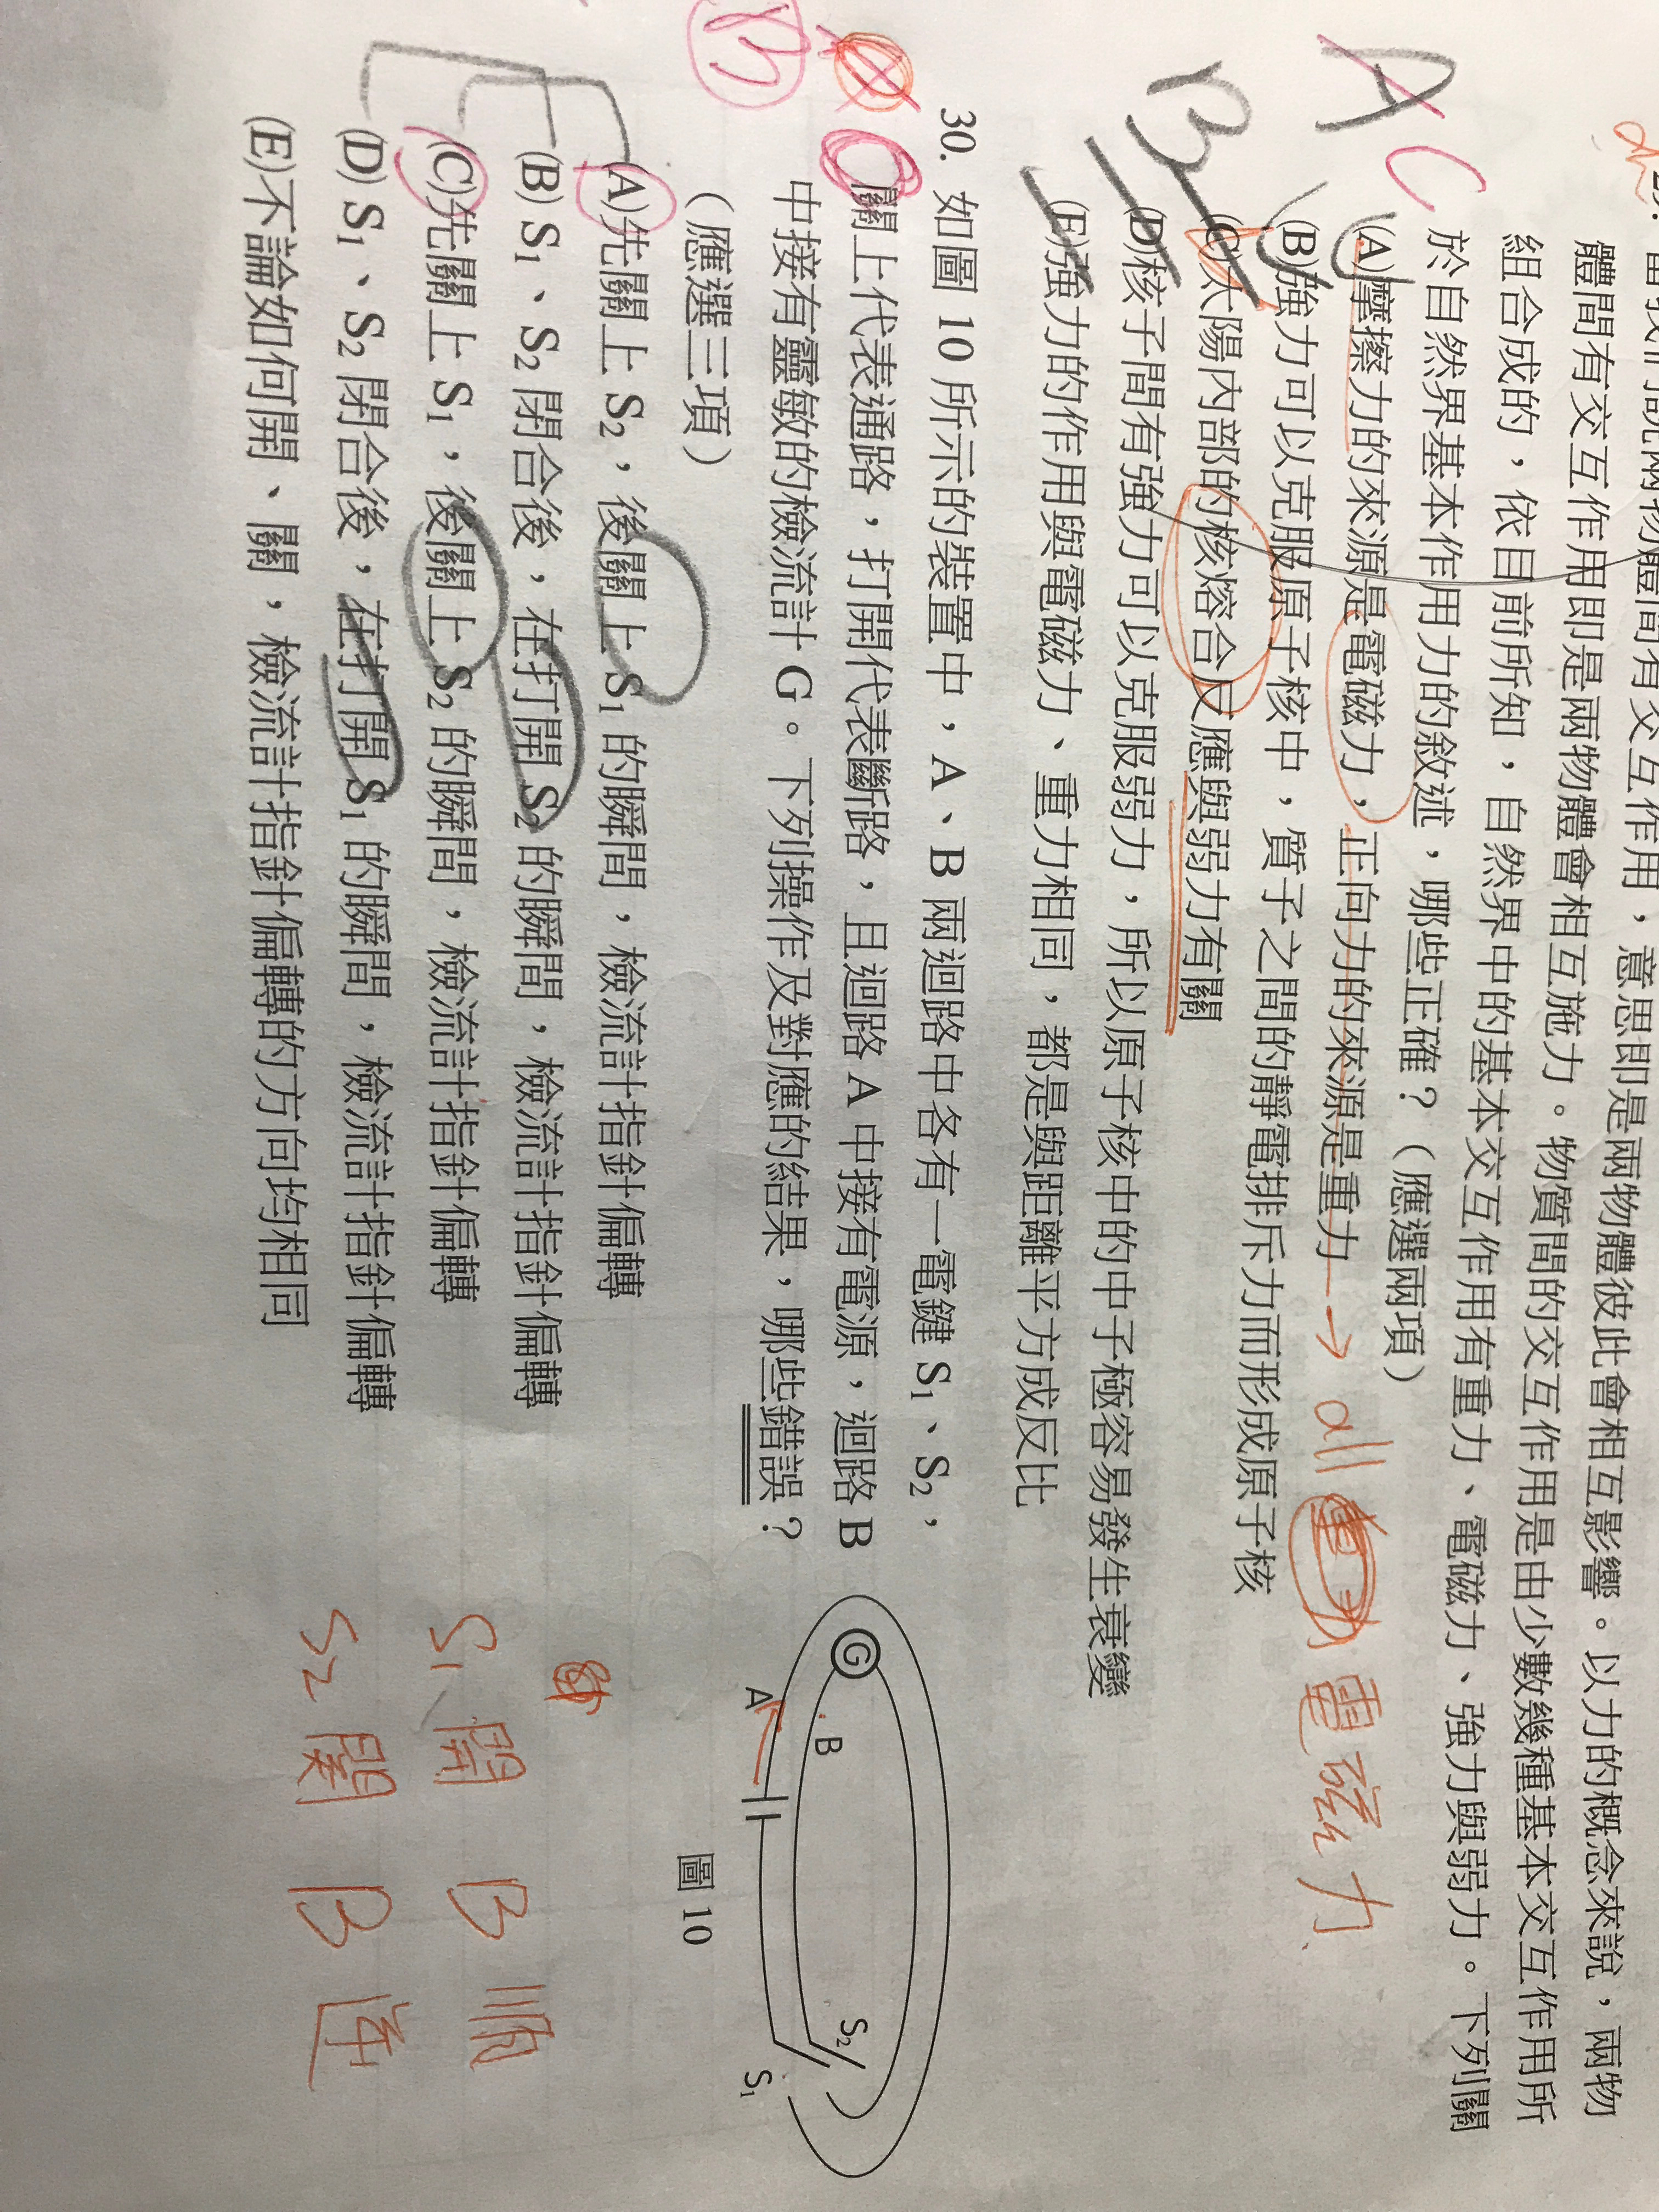 當我們說兩物體間有交互作用，意思即是兩物體彼此會相互影響。以力的概念來說，兩物
體間有交互作用即是兩物體會相互施力。物質間的交互作用是由少數幾種基本交互作用所
組合成的，依目前所知，自然界中的基本交互作用有重力、電磁力、強力與弱力。下列關
於自然界基本作用力的敘述，哪些正確？（應選兩項）
A C
(A)摩擦力的來源是電磁力，正向力的來源是重力 → all 電磁力
(B)強力可以克服原子核中，質子之間的靜電排斥力而形成原子核
B
(C)太陽內部的核熔合反應與弱力有關
(D)核子間有強力可以克服弱力，所以原子核中的中子極容易發生衰變
(E)強力的作用與電磁力、重力相同，都是與距離平方成反比
30. 如圖 10 所示的裝置中，A、B 兩迴路中各有一電鍵 S₁、S₂，
關上代表通路，打開代表斷路，且迴路 A 中接有電源，迴路 B
中接有靈敏的檢流計 G。下列操作及對應的結果，哪些錯誤？
（應選三項）
B
(A)先關上 S₂，後關上 S₁ 的瞬間，檢流計指針偏轉
(B) S₁、S₂ 閉合後，在打開 S₂ 的瞬間，檢流計指針偏轉
(C)先關上 S₁，後關上 S₂ 的瞬間，檢流計指針偏轉
(D) S₁、S₂ 閉合後，在打開 S₁ 的瞬間，檢流計指針偏轉
(E)不論如何開、關，檢流計指針偏轉的方向均相同
G
B
A
S₂
S₁
圖 10
S₁ 開 B 順
S₂ 関 B 逆